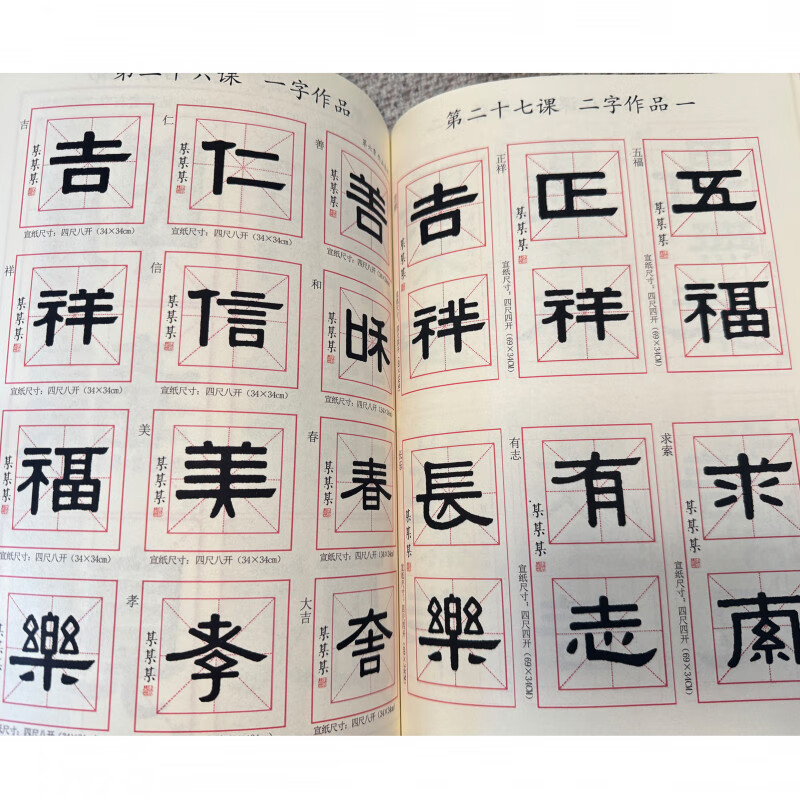 第二十六课 一字作品
仁
仁
某某某
宣纸尺寸：四尺八开（34×34cm）
吉
吉
某某某
宣纸尺寸：四尺八开（34×34cm）
善
善
某某某
宣纸尺寸：四尺八开（34×34cm）
信
信
某某某
宣纸尺寸：四尺八开（34×34cm）
祥
祥
某某某
宣纸尺寸：四尺八开（34×34cm）
和
和
某某某
宣纸尺寸：四尺八开（34×34cm）
美
美
某某某
宣纸尺寸：四尺八开（34×34cm）
福
某某某
宣纸尺寸：四尺八开（34×34cm）
春
春
某某某
宣纸尺寸：四尺八开（34×34cm）
孝
孝
某某某
宣纸尺寸：四尺八开（34×34cm）
樂
宣纸尺寸：四尺八开（34×34cm）
大吉
某某某
宣纸尺寸：四尺八开（34×34cm）
第二十七课 二字作品一
五福
五福
某某某
宣纸尺寸：四尺四开（69×34CM）
正祥
正祥
某某某
宣纸尺寸：四尺四开（69×34CM）
吉祥
某某某
求索
求索
某某某
宣纸尺寸：四尺四开（69×34CM）
有志
有志
某某某
宣纸尺寸：四尺四开（69×34CM）
長樂
某某某